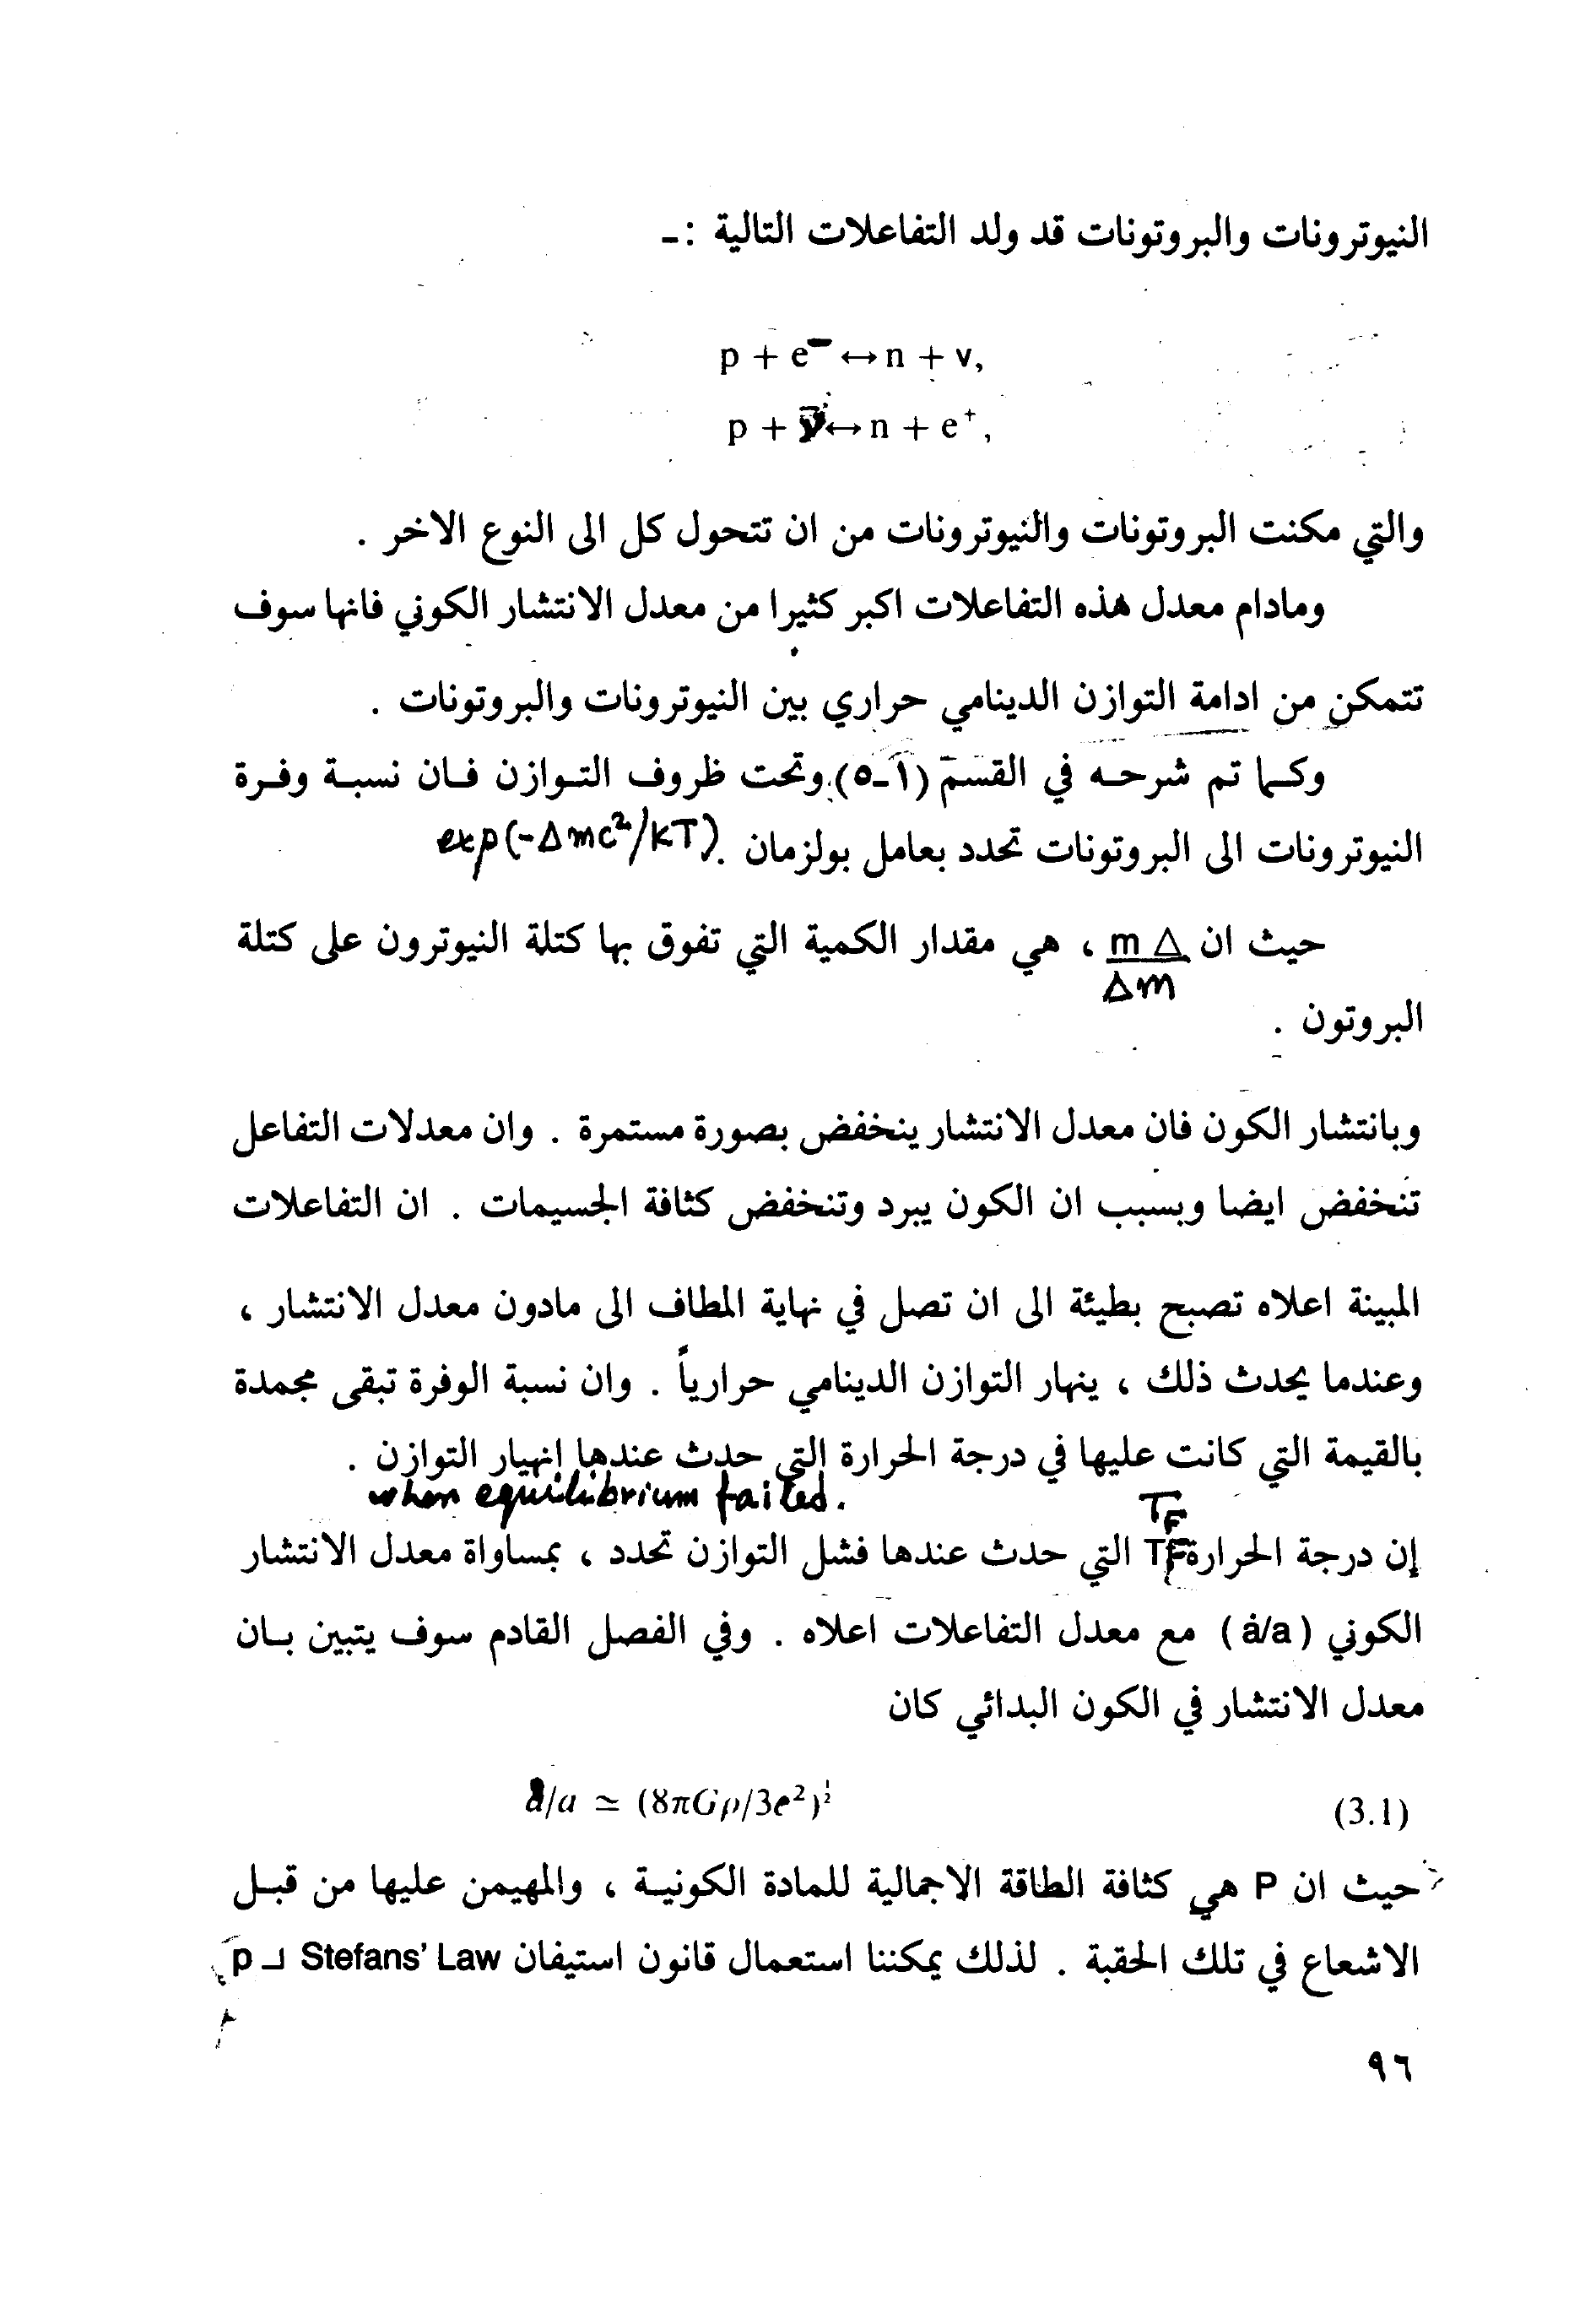 النيوترونات والبروتونات قد ولد التفاعلات التالية :ـ
p + e⁻ ↔ n + ν,
p + ν̄ ↔ n + e⁺,
والتي مكنت البروتونات والنيوترونات من ان تتحول كل الى النوع الاخر .
ومادام معدل هذه التفاعلات اكبر كثيرا من معدل الانتشار الكوني فانها سوف
تتمكن من ادامة التوازن الدينامي حراري بين النيوترونات والبروتونات .
وكما تم شرحه في القسم (١ـ٥) وتحت ظروف التوازن فان نسبة وفرة
النيوترونات الى البروتونات تحدد بعامل بولزمان exp(-Δmc²/kT).
حيث ان m Δ ، هي مقدار الكمية التي تفوق بها كتلة النيوترون على كتلة
Δm
البروتون .
وبانتشار الكون فان معدل الانتشار ينخفض بصورة مستمرة . وان معدلات التفاعل
تنخفض ايضا وبسبب ان الكون يبرد وتنخفض كثافة الجسيمات . ان التفاعلات
المبينة اعلاه تصبح بطيئة الى ان تصل في نهاية المطاف الى مادون معدل الانتشار ،
وعندما يحدث ذلك ، ينهار التوازن الدينامي حرارياً . وان نسبة الوفرة تبقى مجمدة
بالقيمة التي كانت عليها في درجة الحرارة التي حدث عندها إنهيار التوازن .
when equilibrium failed.
T_F
إن درجة الحرارة TF التي حدث عندها فشل التوازن تحدد ، بمساواة معدل الانتشار
الكوني (ȧ/a) مع معدل التفاعلات اعلاه . وفي الفصل القادم سوف يتبين بان
معدل الانتشار في الكون البدائي كان
ȧ/a ≃ (8πGρ/3c²)^½ (3.1)
حيث ان P هي كثافة الطاقة الاجمالية للمادة الكونية ، والمهيمن عليها من قبل
الاشعاع في تلك الحقبة . لذلك يمكننا استعمال قانون استيفان Stefans’ Law لـ p
٩٦